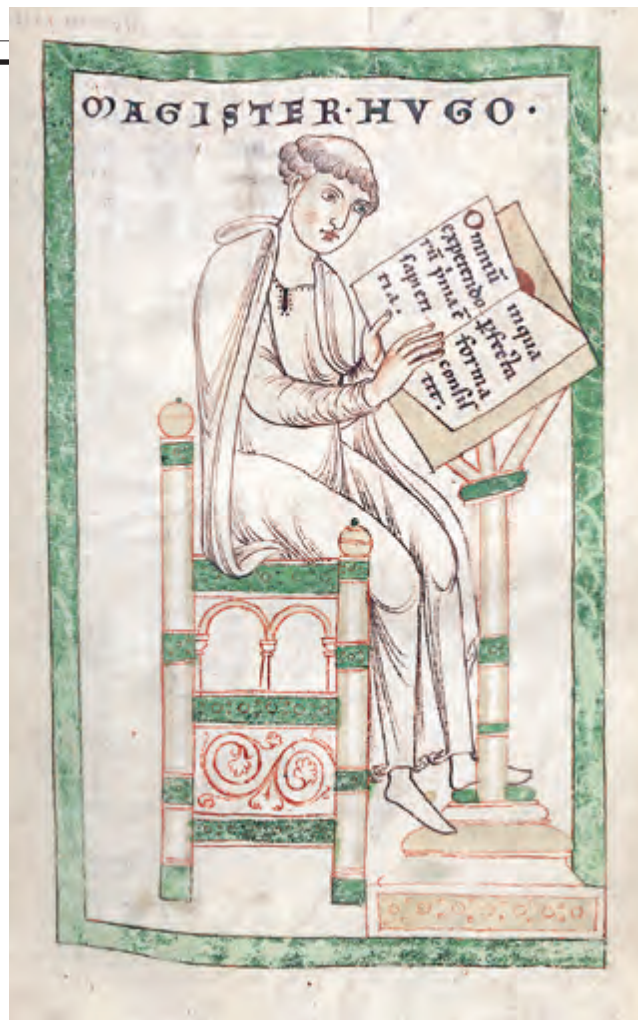 MAGISTER·HVGO·
Omniū
expetendo
rū p'ma ē
sapien
tia.
inqua
forma
consis
tit.